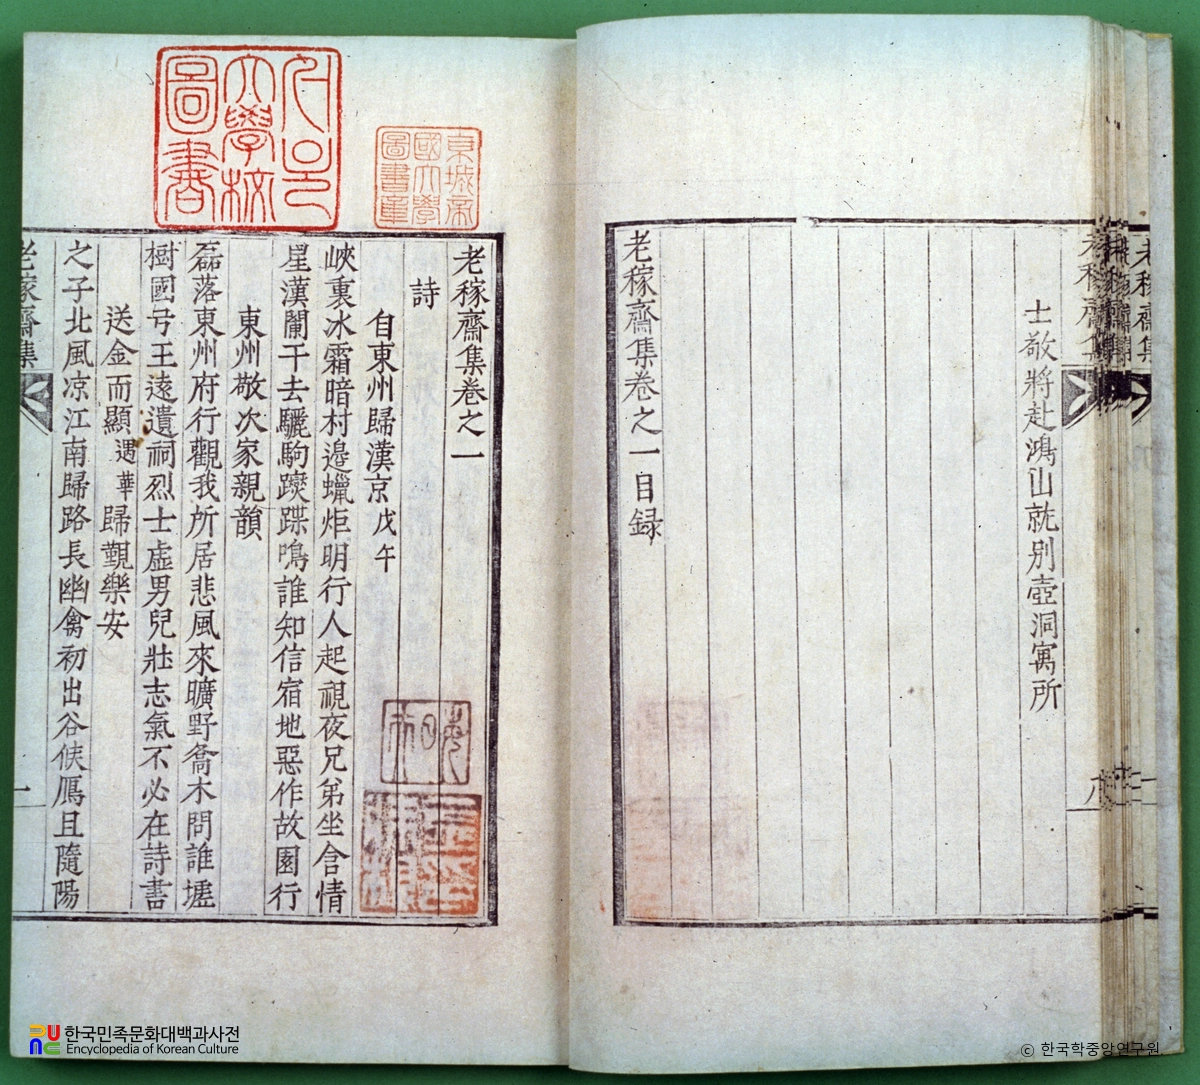 老稼齋集
士敬將赴鴻山就別壺洞寓所
老稼齋集卷之一目録
老稼齋集卷之一
詩
自東州歸漢京戊午
峽裏氷霜暗村邊蠟炬明行人起視夜兄弟坐含情
星漢闌干去驪駒躞蹀鳴誰知信宿地惡作故園行
東州敬次家親韻
磊落東州府行觀我所居悲風來曠野喬木問誰墟
樹國弓王遠遺祠烈士虛男兒壯志氣不必在詩書
送金而顯遇華歸覲樂安
之子北風凉江南歸路長幽禽初出谷候鴈且隨陽
老稼齋集
一
大學校
圖書
京城帝
國大學
圖書章
한국민족문화대백과사전
Encyclopedia of Korean Culture
ⓒ 한국학중앙연구원